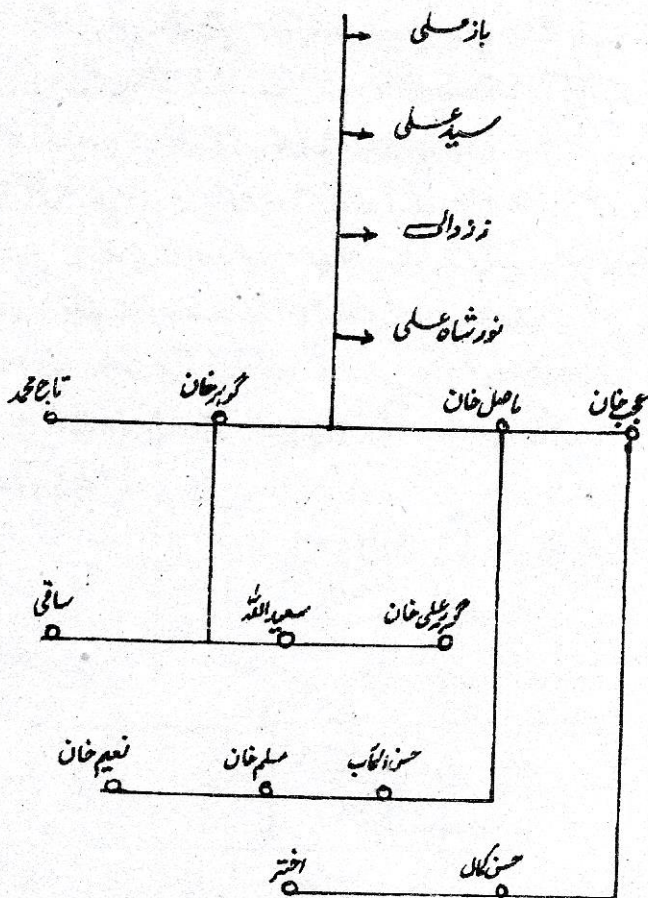 باز علی
سید علی
نور شاه علی
عجب خان
ماصل خان
گوہر خان
تاج محمد
گوہر علی خان
سعید اللہ
ساقی
حسن المآب
مسلم خان
نعیم خان
حسن کمال
اختر